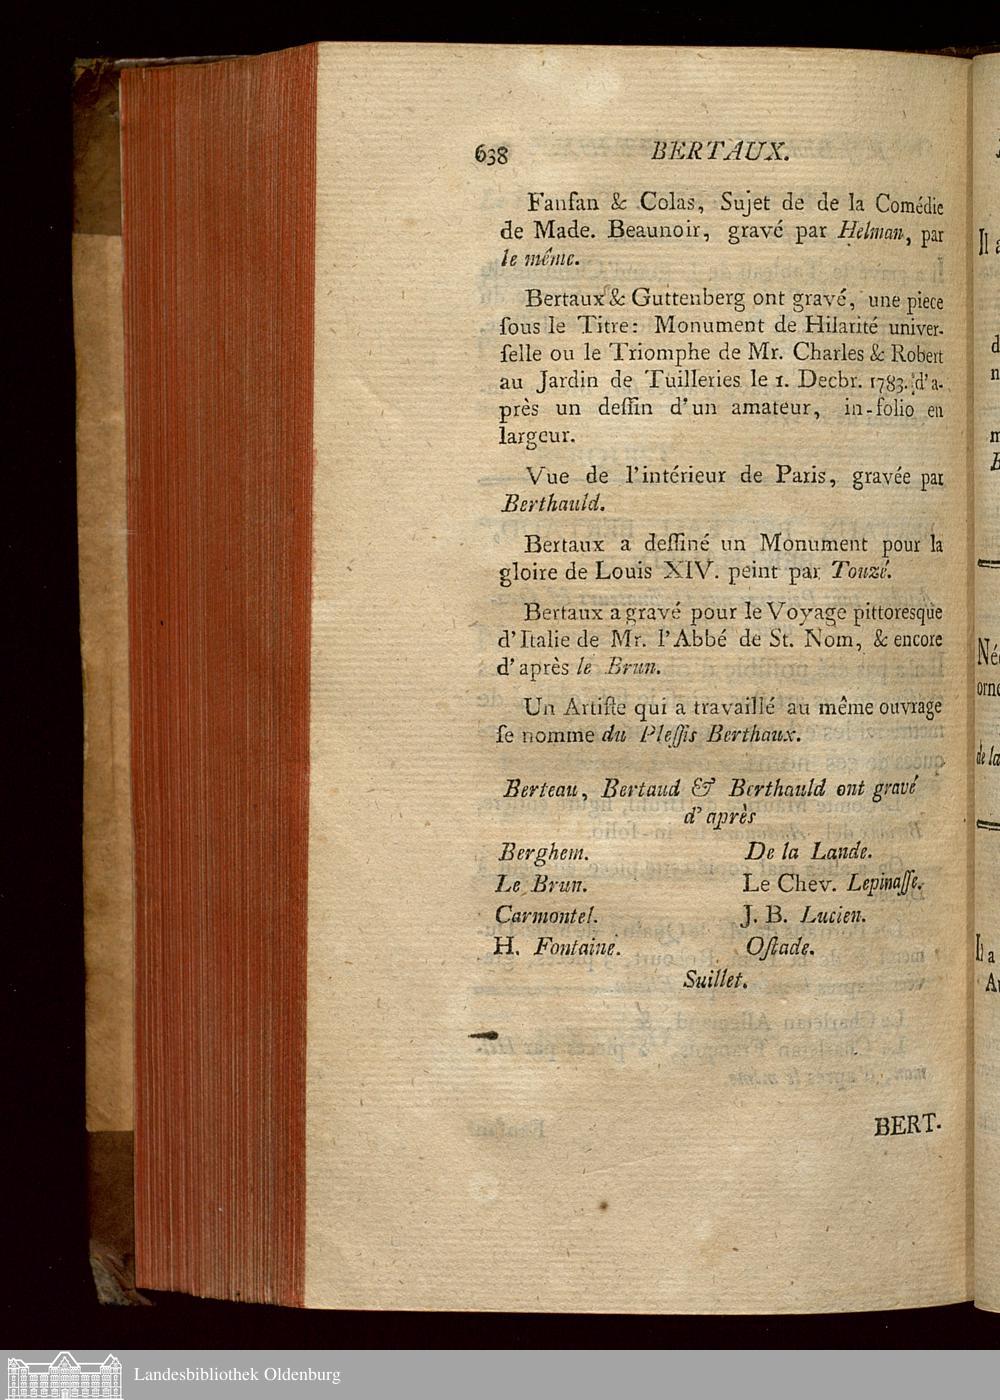 638 BERTAUX.
Fanfan & Colas, Sujet de de la Comédie
de Made. Beaunoir, gravé par Helman, par
le même.
Bertaux & Guttenberg ont gravé, une piece
ſous le Titre: Monument de Hilarité univer-
ſelle ou le Triomphe de Mr. Charles & Robert
au Jardin de Tuilleries le 1. Decbr. 1783. d'a-
près un deſſin d'un amateur, in-folio en
largeur.
Vue de l'intérieur de Paris, gravée par
Berthauld.
Bertaux a deſſiné un Monument pour la
gloire de Louis XIV. peint par Touzé.
Bertaux a gravé pour le Voyage pittoresque
d'Italie de Mr. l'Abbé de St. Nom, & encore
d'après le Brun.
Un Artiſte qui a travaillé au même ouvrage
ſe nomme du Pleſſis Berthaux.
Berteau, Bertaud & Berthauld ont gravé
d'après
Berghem. De la Lande.
Le Brun. Le Chev. Lepinaſſe.
Carmontel. J. B. Lucien.
H. Fontaine. Oſtade.
Suillet.
BERT-
Landesbibliothek Oldenburg